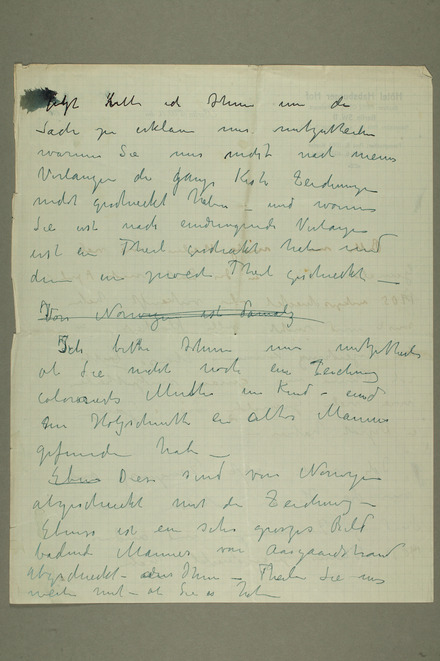 jetzt bitte ich Ihnen um die
Sache zu erklären mir mitzutheilen
warum Sie mir nicht nach meine
Verlangen die ganze Kiste Zeichnungen
nicht geschickt haben – und warum
Sie erst nach eindringende Verlangen
erst ein Theil geschickt haben und
dann ein zweite Theil geschickt –
Von Norwegen ist
Ich bitte Ihnen mir mitzutheilen
ob Sie nicht noch ein Zeichnung
colorierts Mutter und Kind – und
ein Holzschnitte ein altes Mannes
gefunden habe –
Diese sind von Norwegen
abgeschickt mit die Zeichnung –
Ebenso ist ein sehr grosses Bild
badende Männer von Aasgaardstrand
abgeschickt – Ihnen – Theilen Sie mir
mit – ob Sie es haben